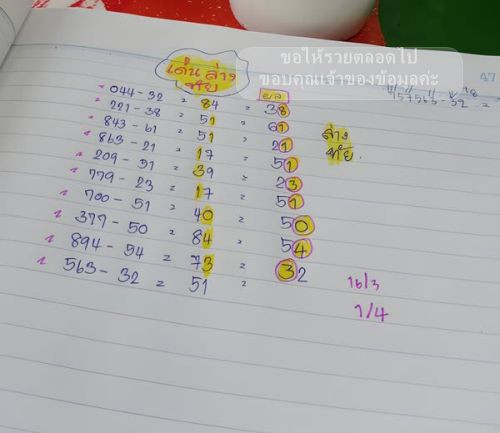 ขอให้รวยตลอดไป
ขอบคุณเจ้าของข้อมูลค่ะ
เด่นล่าง
ทับ
ผล
044-32 = 84 = 38
221-38 = 51 = 61
843-61 = 51 = 21
863-21 = 17 = 51
209-51 = 39 = 23
779-23 = 17 = 51
700-51 = 40 = 50
377-50 = 84 = 54
894-54 = 73 = 32
563-32 = 51 =
ล่าง
ทับ
16/3
1/4